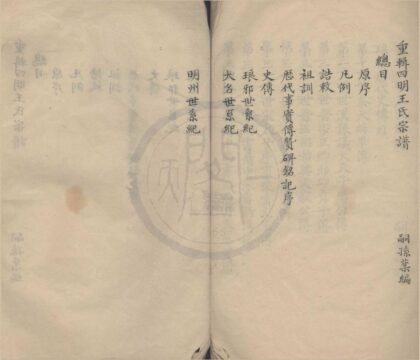 重輯四明王氏宗譜
嗣孫榮編
總目
原序
凡例
誥敕
祖訓
歷代事實傳贊碑銘記序
史傳
琅邪世系紀
大名世系紀
明州世系紀